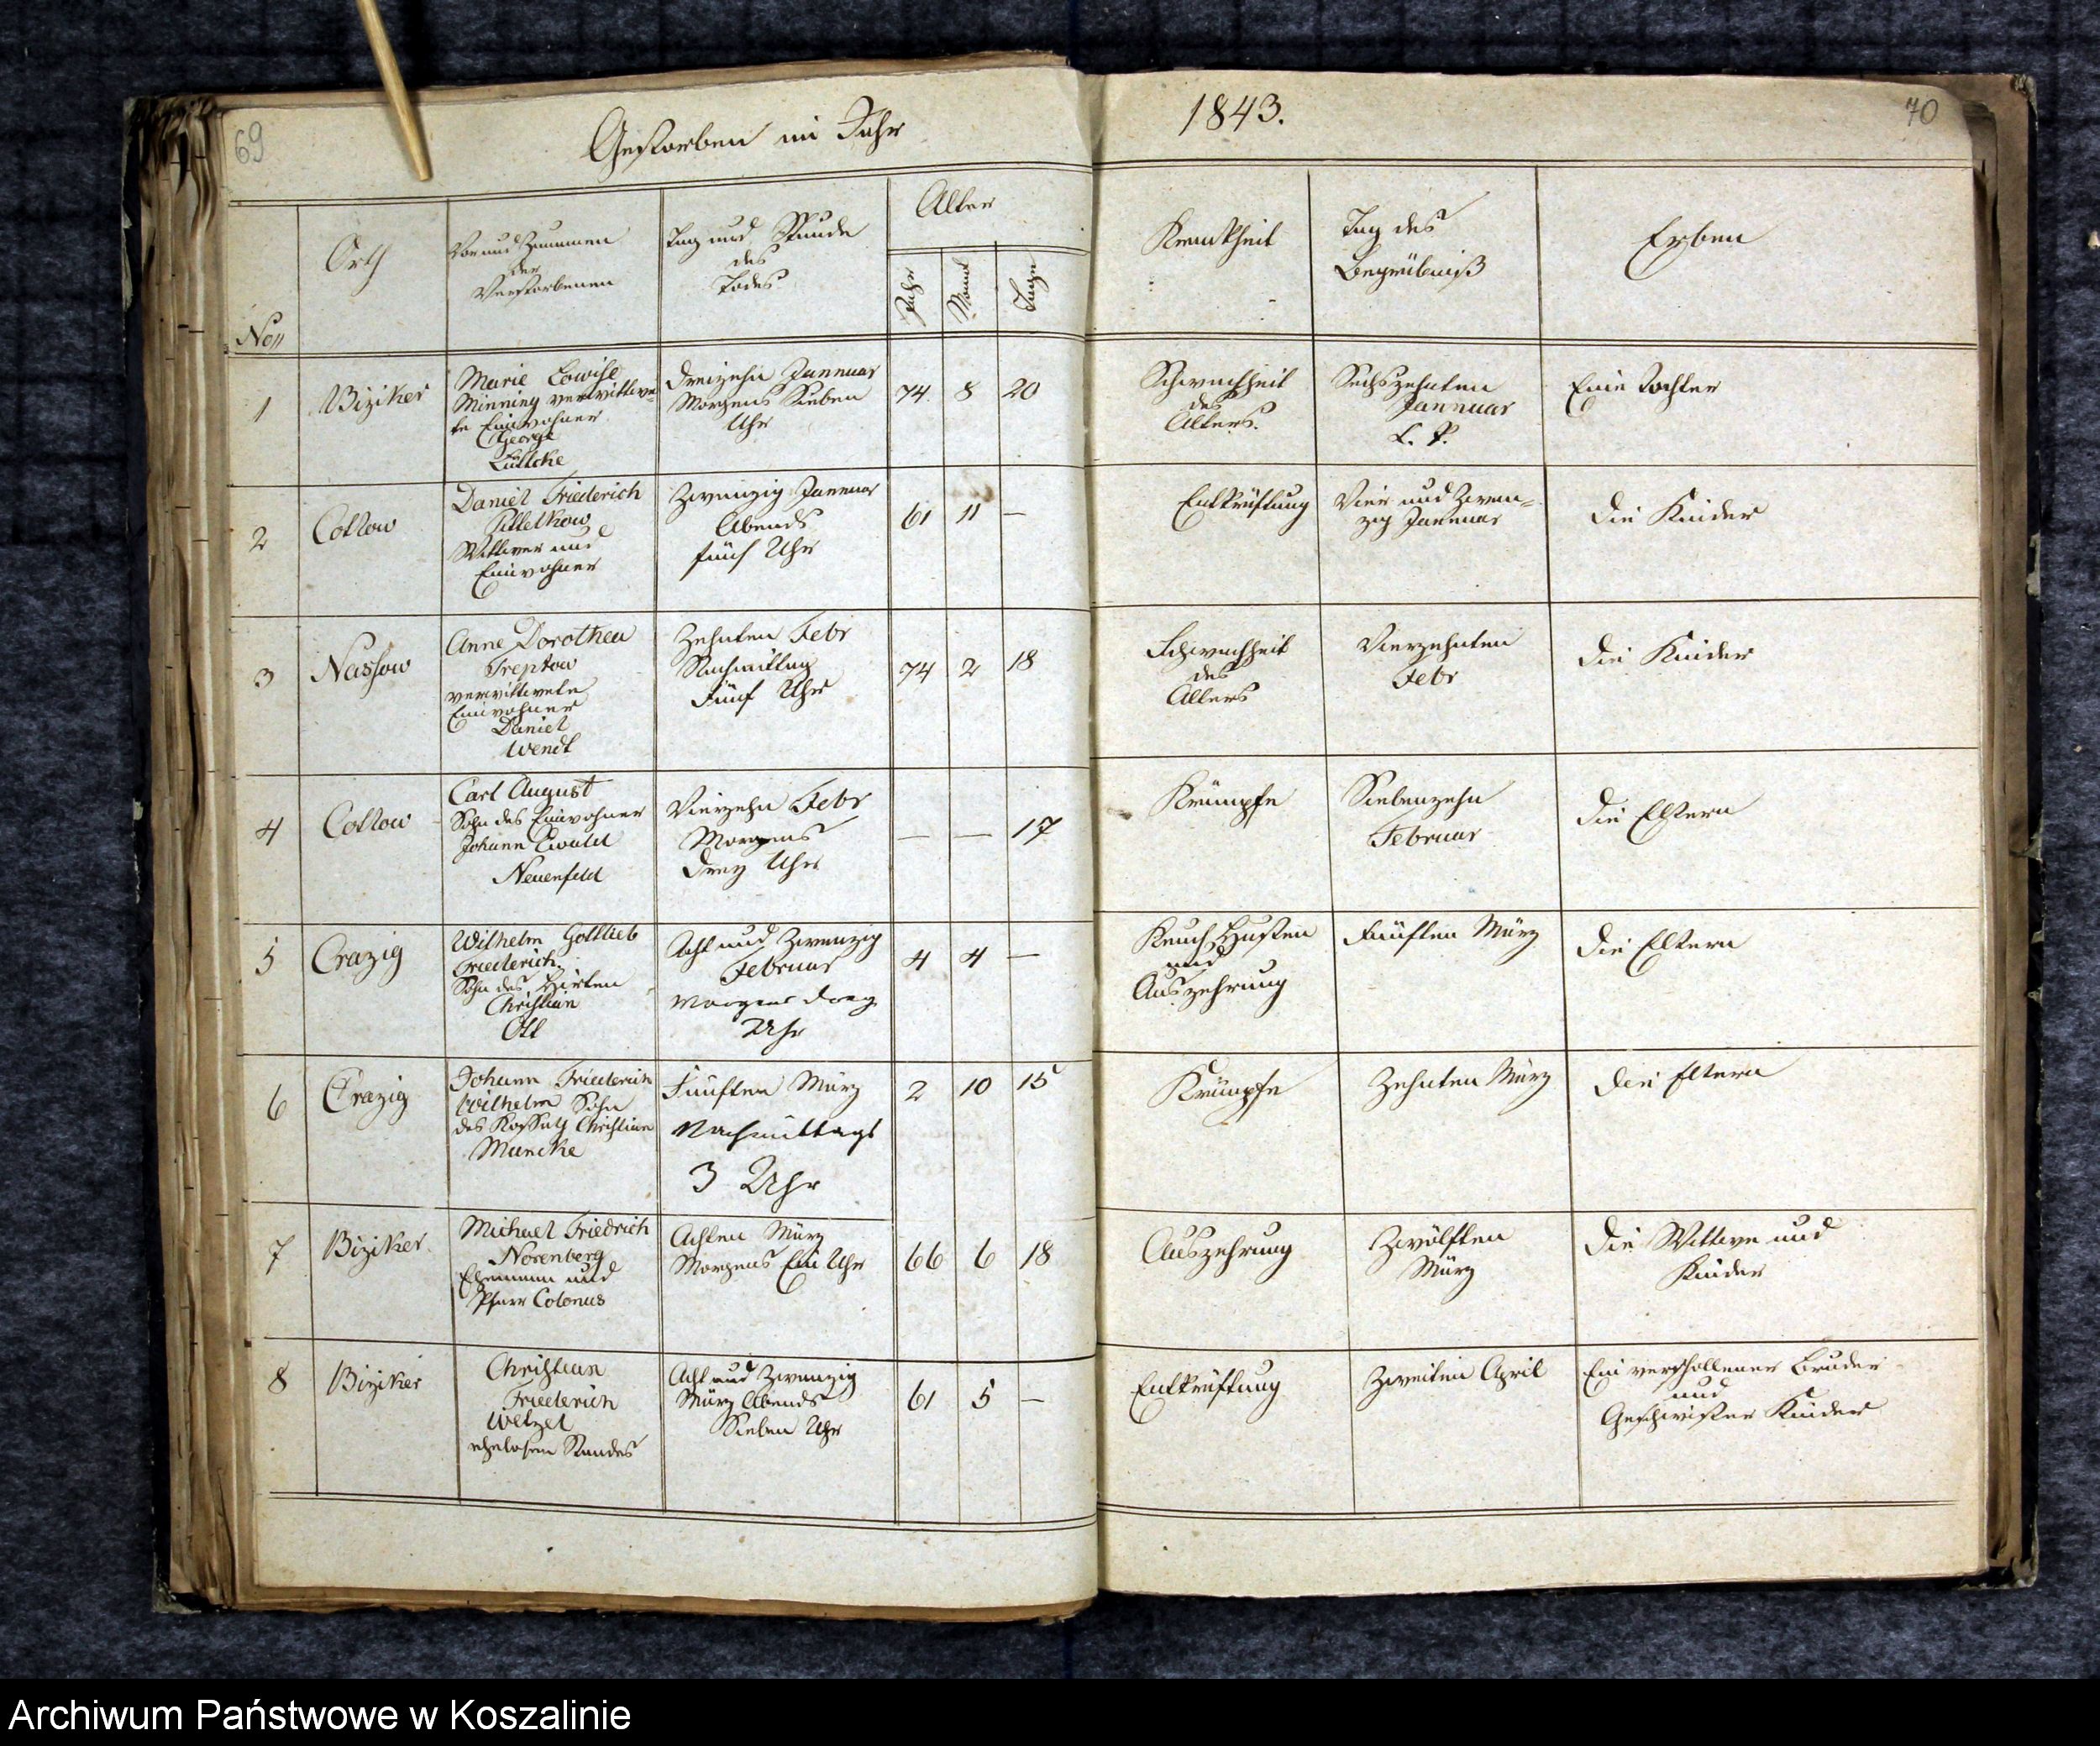 69
Gestorben im Jahr
1843.
70
No
Orth
Vor und Zunamen
der
Verstorbenen
Tag und Stunde
des
Todes
Alter
Jahr
Monat
Tage
Krankheit
Tag des
Begräbniß
Erben
1
Biziker
Marie Lowise
Minning verwittwe-
te Einwohner
George
Lüttcke
Dreizehn Jannuar
Morgens Sieben
Uhr
74.
8
20
Schwachheit
des
Alters.
Sechszehnten
Jannuar
Eine Tochter
2
Cottow
Daniel Friederich
Pittelkow
Wittwer und
Einwohner
Zwanzig Jannuar
Abends
fünf Uhr
61
11
—
Entkräftung
Vier und Zwan=
zig Jannuar
die Kinder
3
Nassow
Anne Dorothea
Treptow
verwittwete
Einwohner
Daniel
Wendt
Zehnten Febr
Nachmittag
Fünf Uhr
74
2
18
Schwachheit
des
Alters
Vierzehnten
Febr
die Kinder
4
Cottow
Carl August
Sohn des Einwohner
Johann Ewald
Neuenfeld
Vierzehn Febr
Morgens
Drey Uhr
—
—
17
Krämpfe
Siebenzehn
Februar
die Eltern
5
Crazig
Wilhelm Gottlieb
Friederich
Sohn des Hirten
Christian
Ott
Acht und Zwanzig
Februar
Morgens drey
Uhr
4
4
—
Keuch Husten
und
Auszehrung
Fünften März
die Eltern
6
Crazig
Johann Friederich
Wilhelm Sohn
des Kossath Christian
Muncke
Fünften März
Nachmittags
3 Uhr
2
10
15
Krämpfe
Zehnten März
die Eltern
7
Biziker
Michael Friedrich
Norenberg
Ehemann und
Pfarr Colonus
Achten März
Morgens Ein Uhr
66
6
18
Auszehrung
Zwölften
März
die Wittwe und
Kinder
8
Biziker
Christian
Friederich
Wetzel
ehelosen Standes
Acht und Zwanzig
März Abends
Sieben Uhr
61
5
—
Entkräftung
Zweiten April
Ein verschollener Bruder
und
Geschwister Kinder
Archiwum Państwowe w Koszalinie